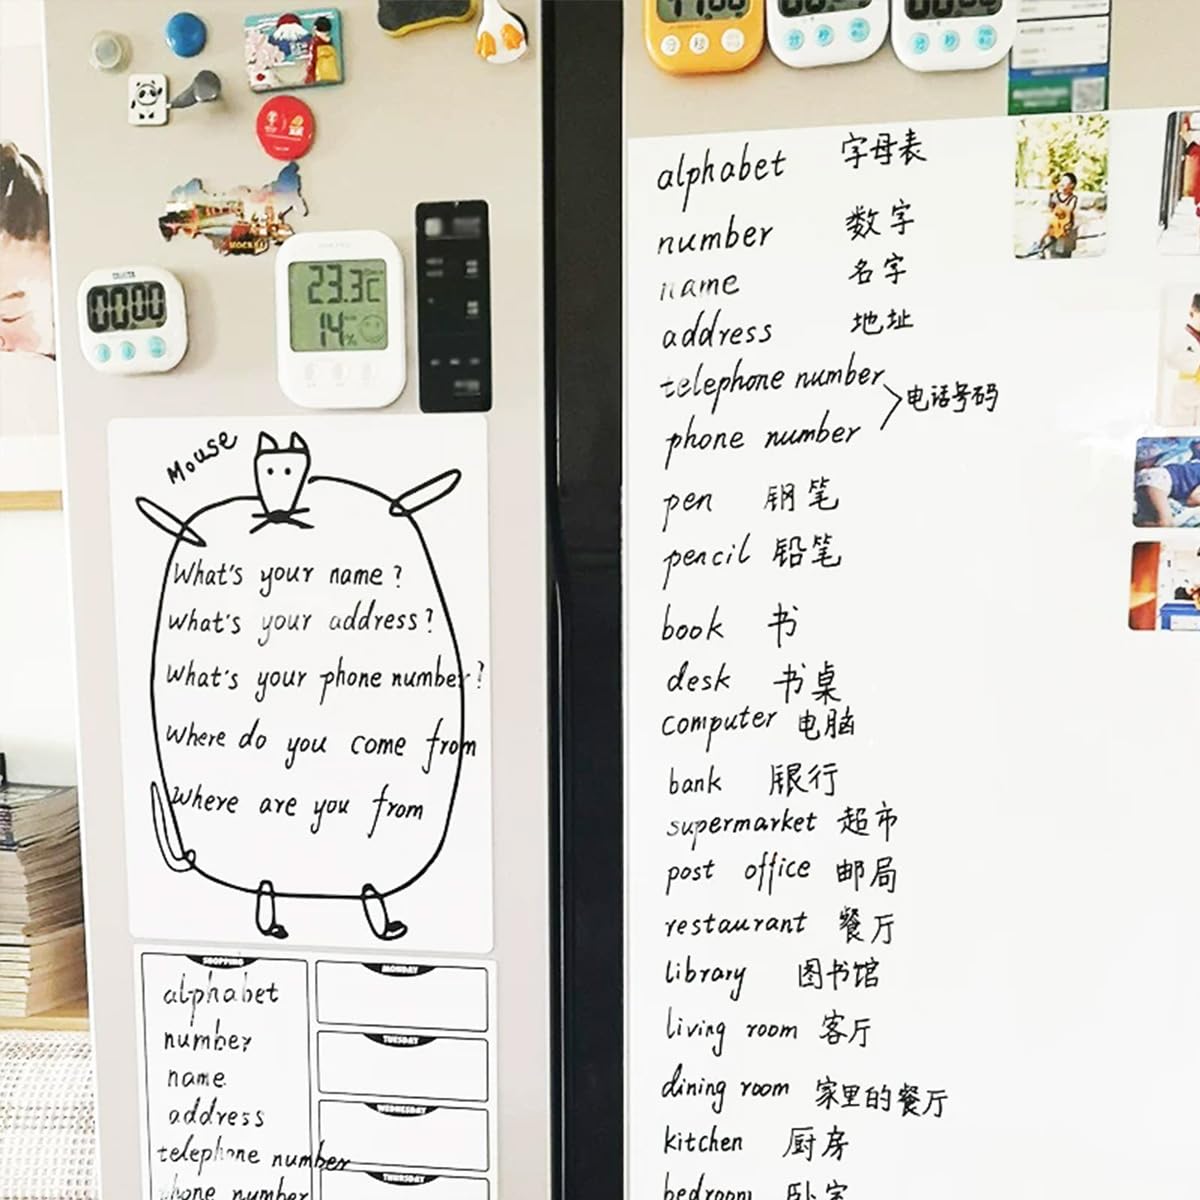 23.3℃
14%
00:00
MOCKBA
Mouse
What's your name?
What's your address?
What's your phone number?
Where do you come from
Where are you from
SHOPPING
alphabet
number
name
address
telephone number
phone number
MONDAY
TUESDAY
WEDNESDAY
THURSDAY
分 秒
alphabet 字母表
number 数字
name 名字
address 地址
telephone number
phone number
电话号码
pen 钢笔
pencil 铅笔
book 书
desk 书桌
computer 电脑
bank 银行
supermarket 超市
post office 邮局
restaurant 餐厅
library 图书馆
living room 客厅
dining room 家里的餐厅
kitchen 厨房
bedroom 卧室